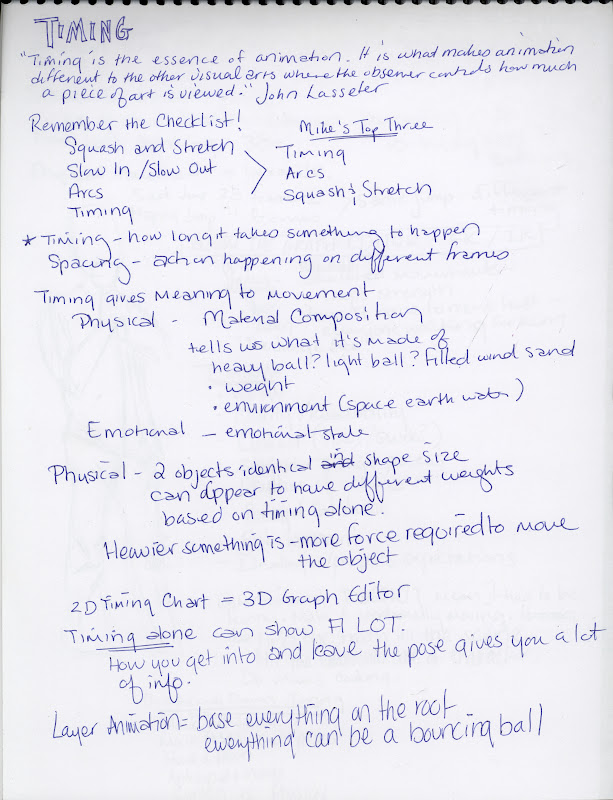 TIMING
"Timing is the essence of animation. It is what makes animation
different to the other visual arts where the observer controls how much
a piece of art is viewed." John Lasseter
Remember the Checklist!
Mike's Top Three
Squash and Stretch
Slow In / Slow Out
Arcs
Timing
Timing
Arcs
Squash & Stretch
* Timing - how long it takes something to happen
Spacing - action happening on different frames
Timing gives Meaning to movement
Physical - Material Composition
tells us what it's made of
heavy ball? light ball? filled wind sand
• weight
• environment (space earth water)
Emotional - emotional state
Physical - 2 objects, identical in shape size
can appear to have different weights
based on timing alone.
Heavier something is - more force required to move
the object
2D Timing Chart = 3D Graph Editor
Timing alone can show A LOT.
How you get into and leave the pose gives you a lot
of info.
Layer Animation = base everything on the root
everything can be a bouncing ball